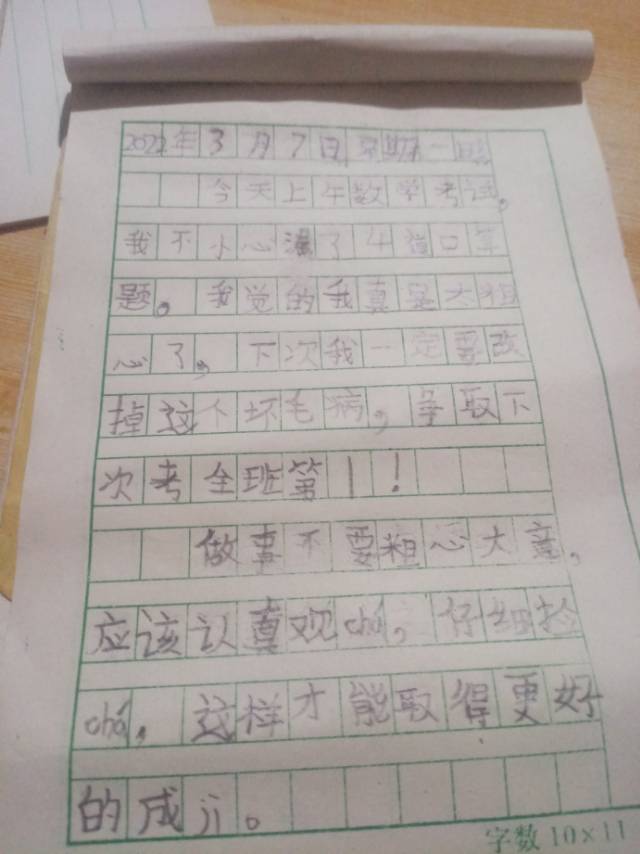 2022年3月7日星期一晴
今天上午数学考试,
我不小心漏了4道口算
题。我觉的我真是太粗
心了,下次我一定要改
掉这个坏毛病,争取下
次考全班第1!
做事不要粗心大意,
应该认真观chá,仔细捡
chá,这样才能取得更好
的成jì。
字数10×11